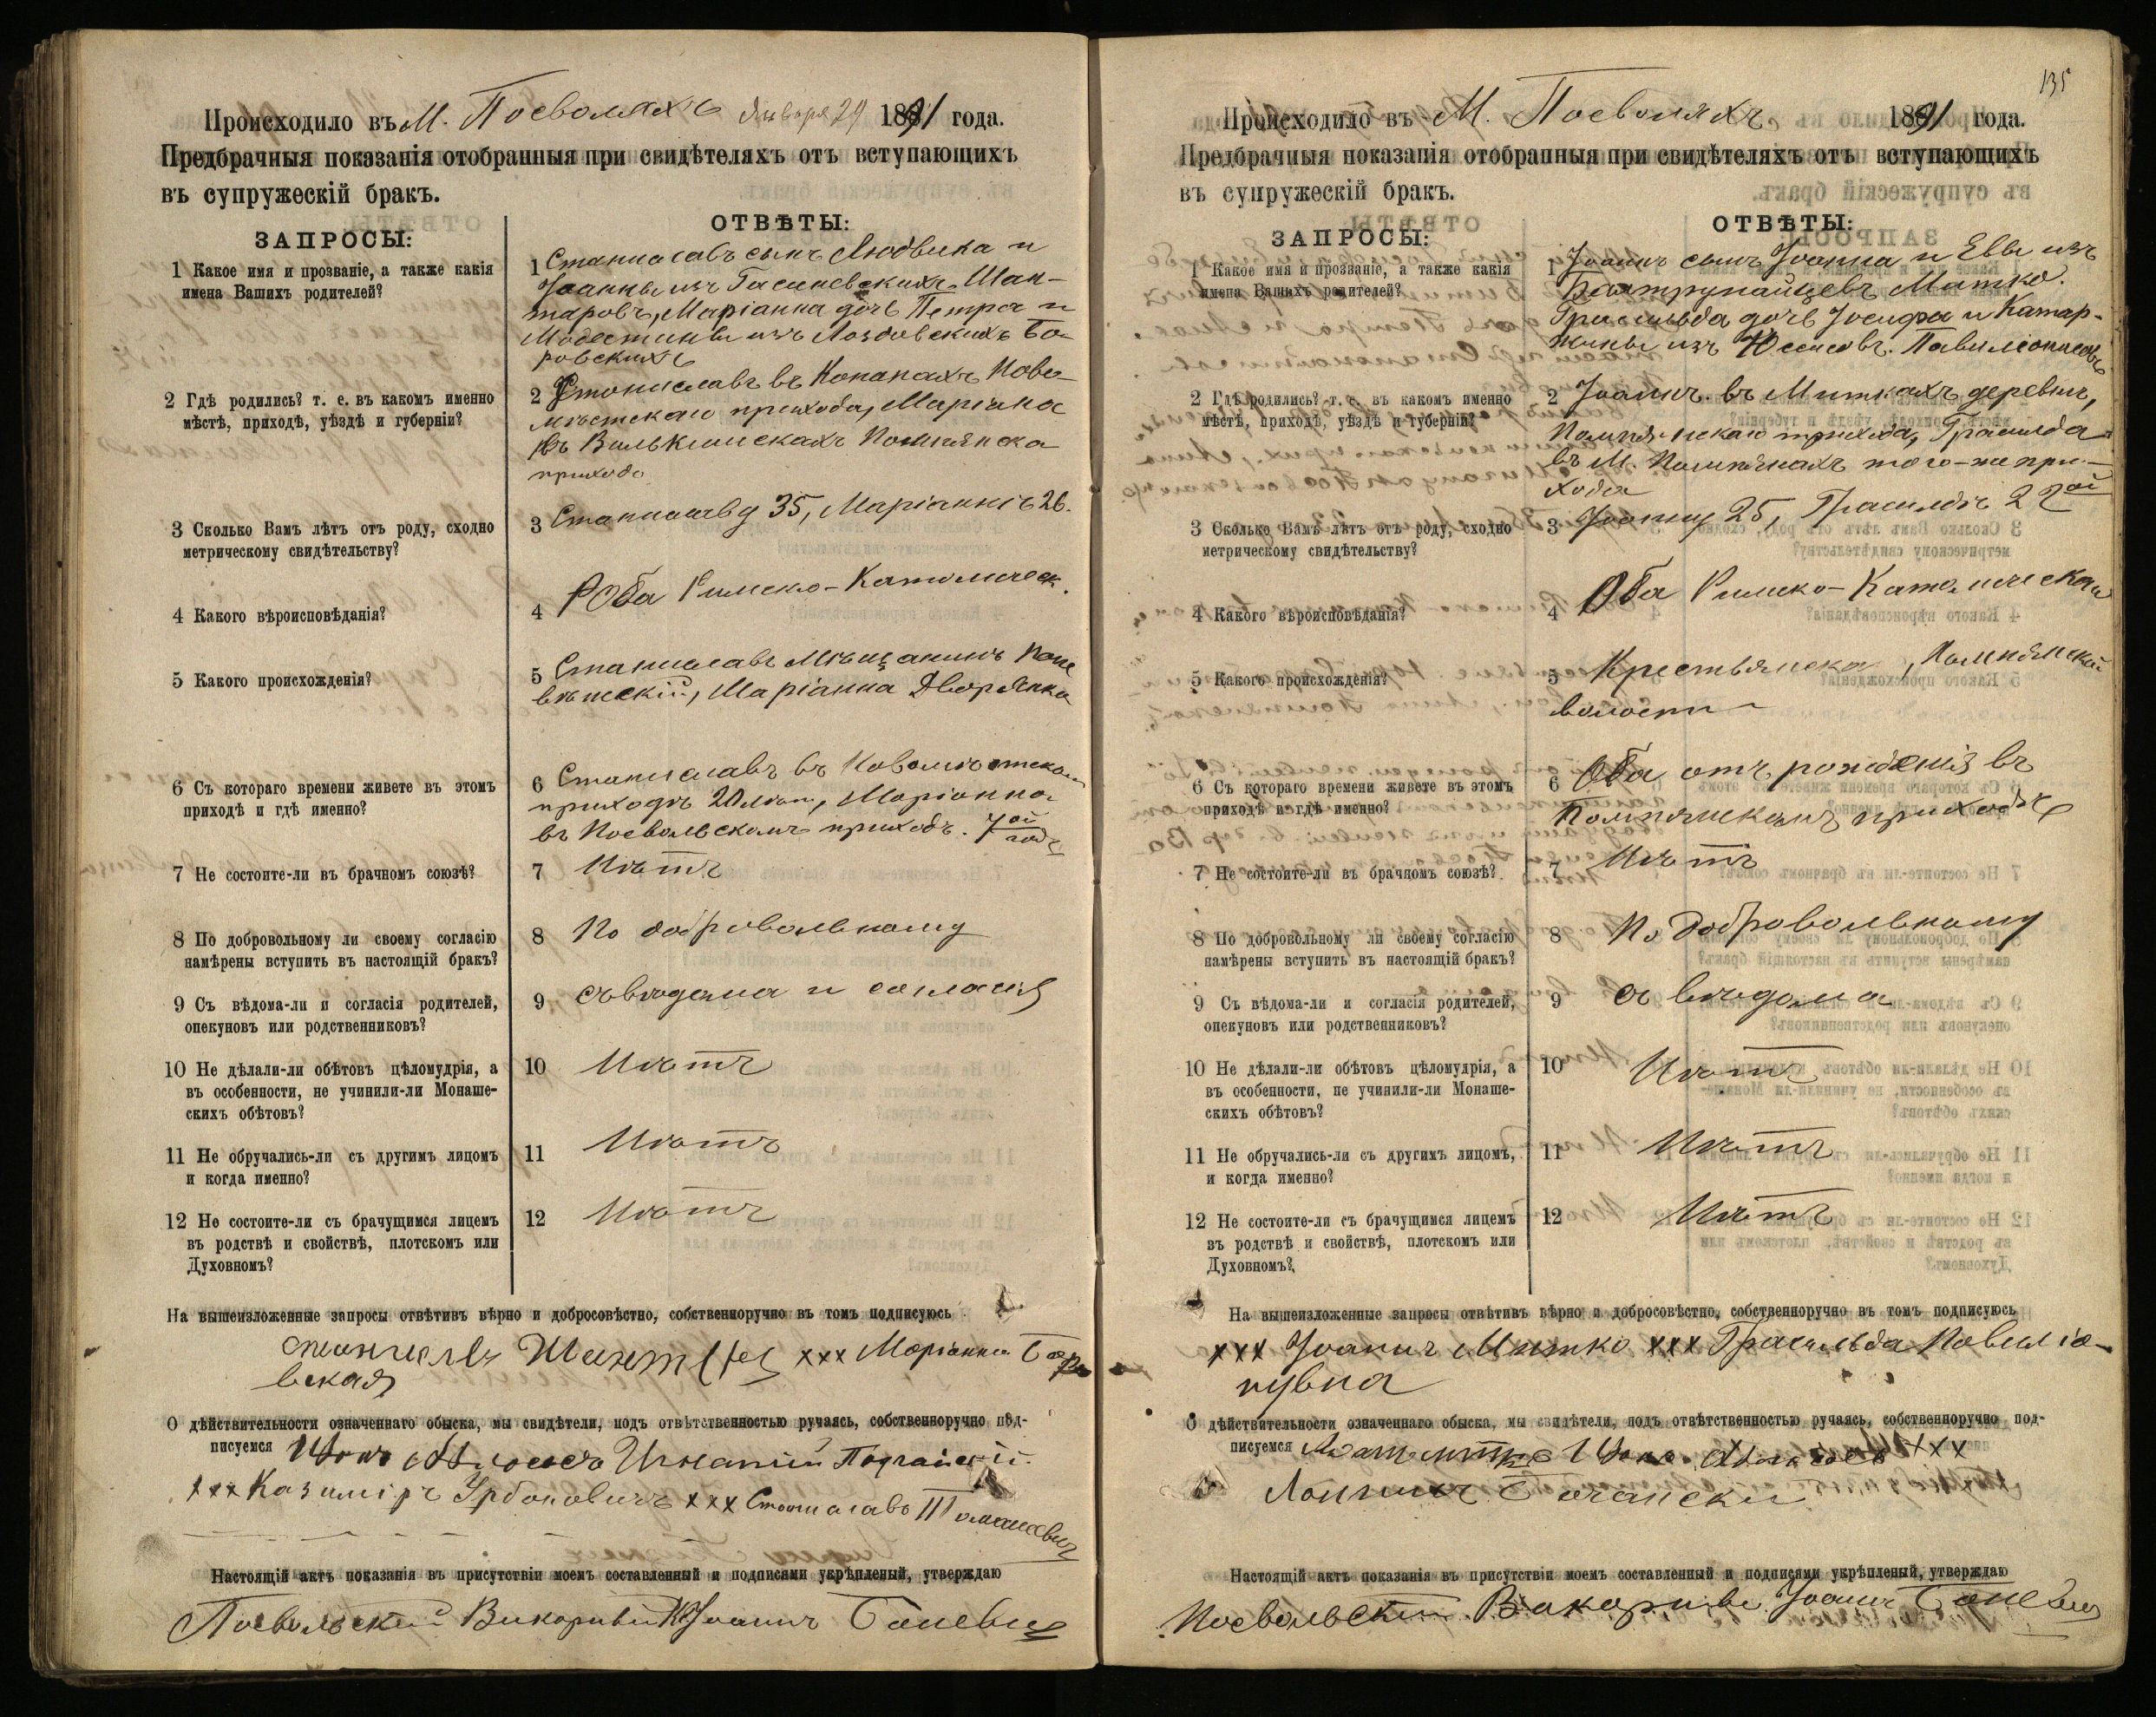 Происходило въ М. Поеволяхъ Января 29 1891 года.
Предбрачныя показанія отобранныя при свидѣтеляхъ отъ вступающихъ
въ супружескій бракъ.
ЗАПРОСЫ:
ОТВѢТЫ:
1 Какое имя и прозваніе, а также какія
имена Вашихъ родителей?
1 Станиславъ сынъ Людвика и
Іоанны изъ Шан-
таровъ, Маріанна дочь Петра и
Модестины изъ Лоздовскихъ Бо-
ровскихъ
2 Гдѣ родились? т. е. въ какомъ именно
мѣстѣ, приходѣ, уѣздѣ и губерніи?
2 Станиславъ въ Ново-
мѣстскаго прихода, Маріана
въ Помпянска
прихода
3 Сколько Вамъ лѣтъ отъ роду, сходно
метрическому свидѣтельству?
3 Станиславу 35, Маріаннѣ 26.
4 Какого вѣроисповѣданія?
4 Оба Римско-Католическ.
5 Какого происхожденія?
5 Станиславъ Мѣщанинъ Поне
вѣжскій, Маріанна Дворянка
6 Съ котораго времени живете въ этомъ
приходѣ и гдѣ именно?
6 Станиславъ въ Новомѣстском
приходѣ 20 лѣтъ, Маріанна
въ Поевольскомъ приходѣ. 7ой годъ
7 Не состоите-ли въ брачномъ союзѣ?
7 Нѣтъ
8 По добровольному ли своему согласію
намѣрены вступить въ настоящій бракъ?
8 По добровольному
9 Съ вѣдома-ли и согласія родителей,
опекуновъ или родственниковъ?
9 Съ вѣдома и согласія
10 Не дѣлали-ли обѣтовъ цѣломудрія, а
въ особенности, не учинили-ли Монаше-
скихъ обѣтовъ?
10 Нѣтъ
11 Не обручались-ли съ другимъ лицомъ
и когда именно?
11 Нѣтъ
12 Не состоите-ли съ брачущимся лицемъ
въ родствѣ и свойствѣ, плотскомъ или
Духовномъ?
12 Нѣтъ
На вышеизложенные запросы отвѣтивъ вѣрно и добросовѣстно, собственноручно въ томъ подписуюсь
ххх Маріанна Боро
вская
О дѣйствительности означеннаго обыска, мы свидѣтели, подъ отвѣтственностью ручаясь, собственноручно под-
писуемся Игнатій
ххх Казиміръ Урбоновичъ ххх Станиславъ Томашевич
Настоящій актъ показанія въ присутствіи моемъ составленный и подписями укрѣпленый, утверждаю
Поевольскій Викорный Кс Іоаннъ
135
Происходило въ М. Поеволяхъ 1891 года.
Предбрачныя показанія отобранныя при свидѣтеляхъ отъ вступающихъ
въ супружескій бракъ.
ЗАПРОСЫ:
ОТВѢТЫ:
1 Какое имя и прозваніе, а также какія
имена Вашихъ родителей?
1 Іоаннъ сынъ Іоанна и Евы изъ
Митко.
Грасильда дочь Іосифа и Катар-
жины изъ
2 Гдѣ родились? т. е. въ какомъ именно
мѣстѣ, приходѣ, уѣздѣ и губерніи?
2 Іоаннъ въ Миткахъ деревни,
Помпянскаго прихода, Грасильда
въ М. Помпянахъ того-же при-
хода
3 Сколько Вамъ лѣтъ отъ роду, сходно
метрическому свидѣтельству?
3 Іоанну 25, Грасильдѣ 22ой
4 Какого вѣроисповѣданія?
4 Оба Римско-Католическаго
5 Какого происхожденія?
5 Крестьянска, Помпянской
волости
6 Съ котораго времени живете въ этомъ
приходѣ и гдѣ именно?
6 Оба отъ рожденія въ
Помпянскомъ приходѣ
7 Не состоите-ли въ брачномъ союзѣ?
7 Нѣтъ
8 По добровольному ли своему согласію
намѣрены вступить въ настоящій бракъ?
8 По добровольному
9 Съ вѣдома-ли и согласія родителей,
опекуновъ или родственниковъ?
9 Съ вѣдома
10 Не дѣлали-ли обѣтовъ цѣломудрія, а
въ особенности, не учинили-ли Монаше-
скихъ обѣтовъ?
10 Нѣтъ
11 Не обручались-ли съ другихъ лицомъ,
и когда именно?
11 Нѣтъ
12 Не состоите-ли съ брачущимся лицемъ
въ родствѣ и свойствѣ, плотскомъ или
Духовномъ?
12 Нѣтъ
На вышеизложенные запросы отвѣтивъ вѣрно и добросовѣстно, собственноручно въ томъ подписуюсь
ххх Іоаннъ Митко ххх Грасильда Повиліо-
нувна
О дѣйствительности означеннаго обыска, мы свидѣтели, подъ отвѣтственностью ручаясь, собственноручно под-
писуемся ххх
Настоящій актъ показанія въ присутствіи моемъ составленный и подписями укрѣпленый, утверждаю
Поевольскій Викорный Іоаннъ